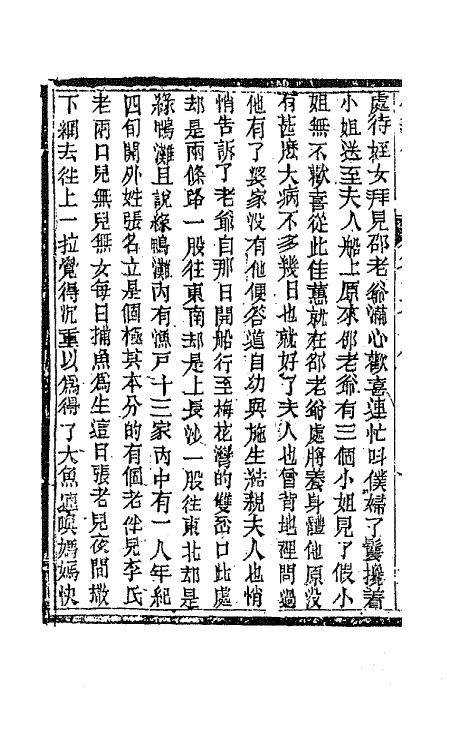 處待姪女拜見邵老爺滿心歡喜連忙叫僕婦丫鬟攙着
小姐送至夫人船上原來邵老爺有三個小姐見了假小
姐無不歡喜從此佳蕙就在邵老爺處將養身體他原没
有甚麽大病不多幾日也就好了夫人也曾背地裡問過
他有了婆家没有他便答道自幼與施生結親夫人也悄
悄告訴了老爺自那日開船行至梅花灣的雙岔口此處
却是兩條路一股徃東南却是上長沙一股徃東北却是
綠鴨灘且說綠鴨灘内有漁戶十三家内中有一人年紀
四旬開外姓張名立是個極其本分的有個老伴兒李氏
老兩口兒無兒無女每日捕魚爲生這日張老兒夜間撒
下網去徃上一拉覺得沉重以爲得了大魚連喚媽媽快